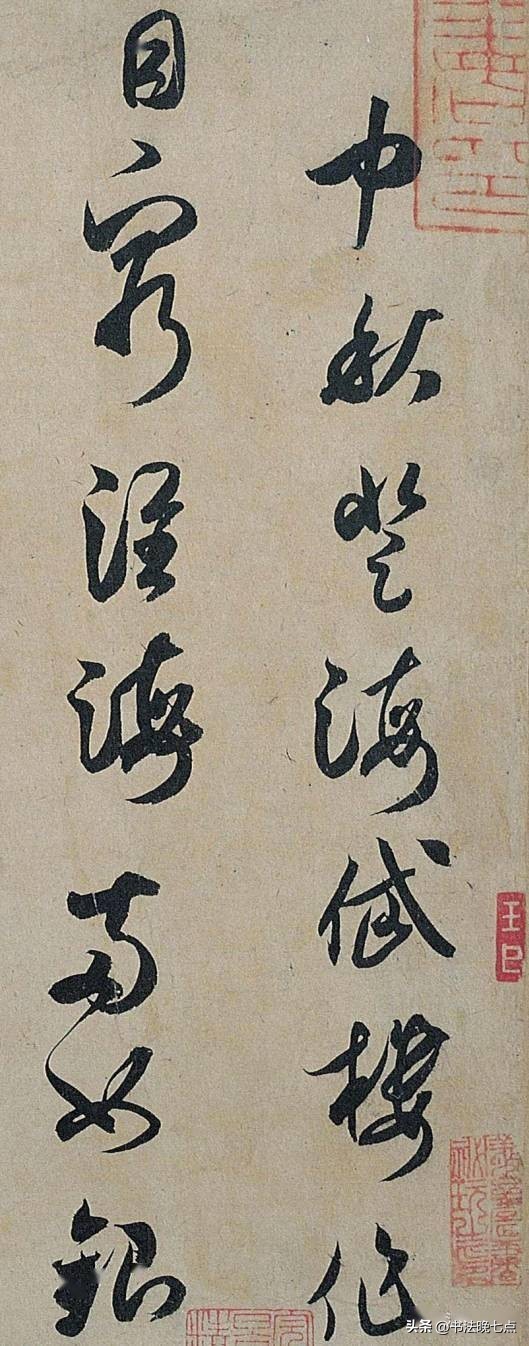 中秋登海岱樓作
目窮淮海兩如銀
头条 @书法晚七点